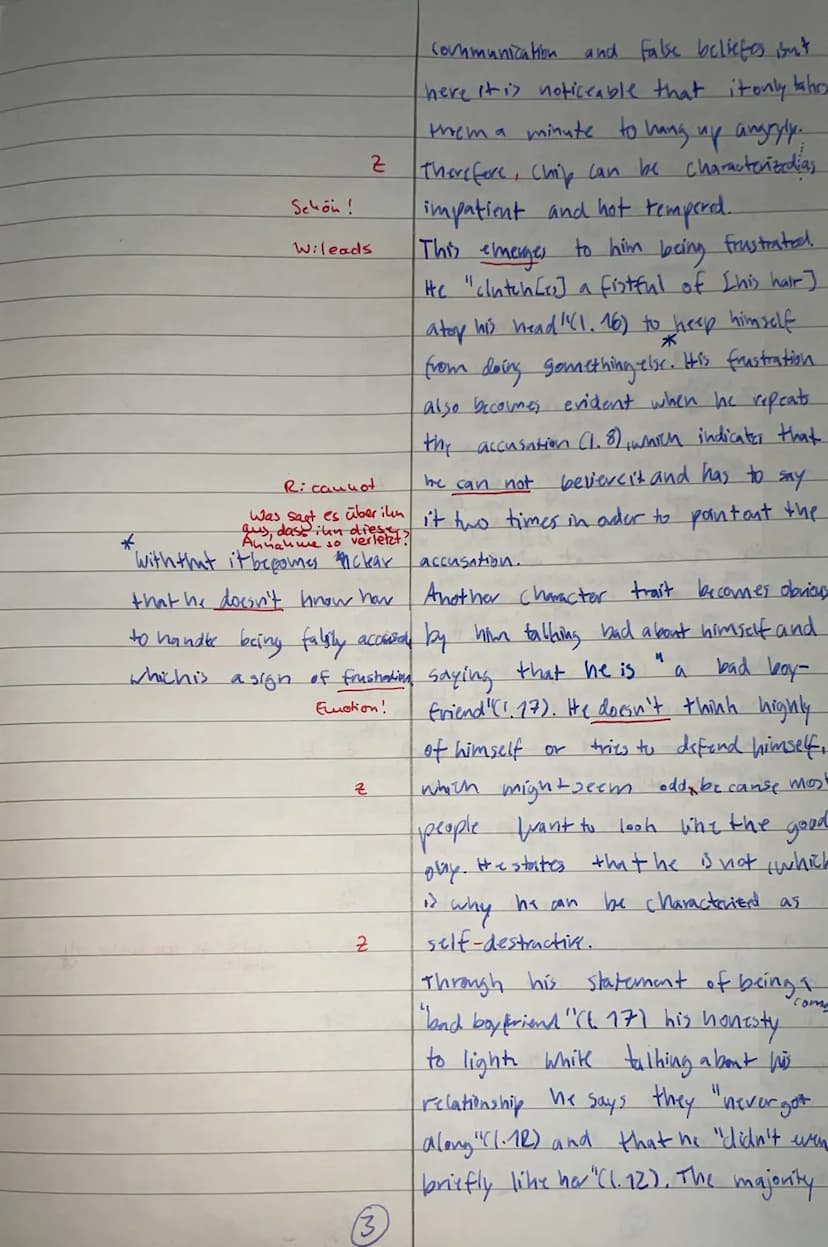 communication and false beliefs but
here it is noticeable that it only takes
them a minute to hang up angryly.
Z
Therefore, Chip can be characterized as
Schön!
impatient and hot tempered.
W: leads
This emerges to him being frustrated.
He "clutch[es] a fistful of [his hair]
atop his head"(l. 16) to keep himself
from doing something else.* His frustration
also becomes evident when he repeats
the accusation (l. 8), which indicates that
R: cannot
he can not believe it and has to say
Was sagt es über ihn
aus, dass ihn diese
Annahme so verletzt?
it two times in oder to point out the
accusation.
* With that it becomes clear
that he doesn't know how
to handle being falsly accused,
which is a sign of frustration
Emotion!
Another character trait becomes obvious
by him talking bad about himself and
saying that he is "a bad boy-
friend"(l. 17). He doesn't think highly
of himself or tries to defend himself,
Z
which might seem odd, because most
people want to look like the good
guy. He states that he is not, which
is why he can be characterized as
Z
self-destructive.
Through his statement of being a
"bad boyfriend"(l. 17) his honesty comes
to light. While talking about his
relationship he says they "never got
along"(l. 12) and that he "didn't even
briefly like her"(l. 12). The majority
3